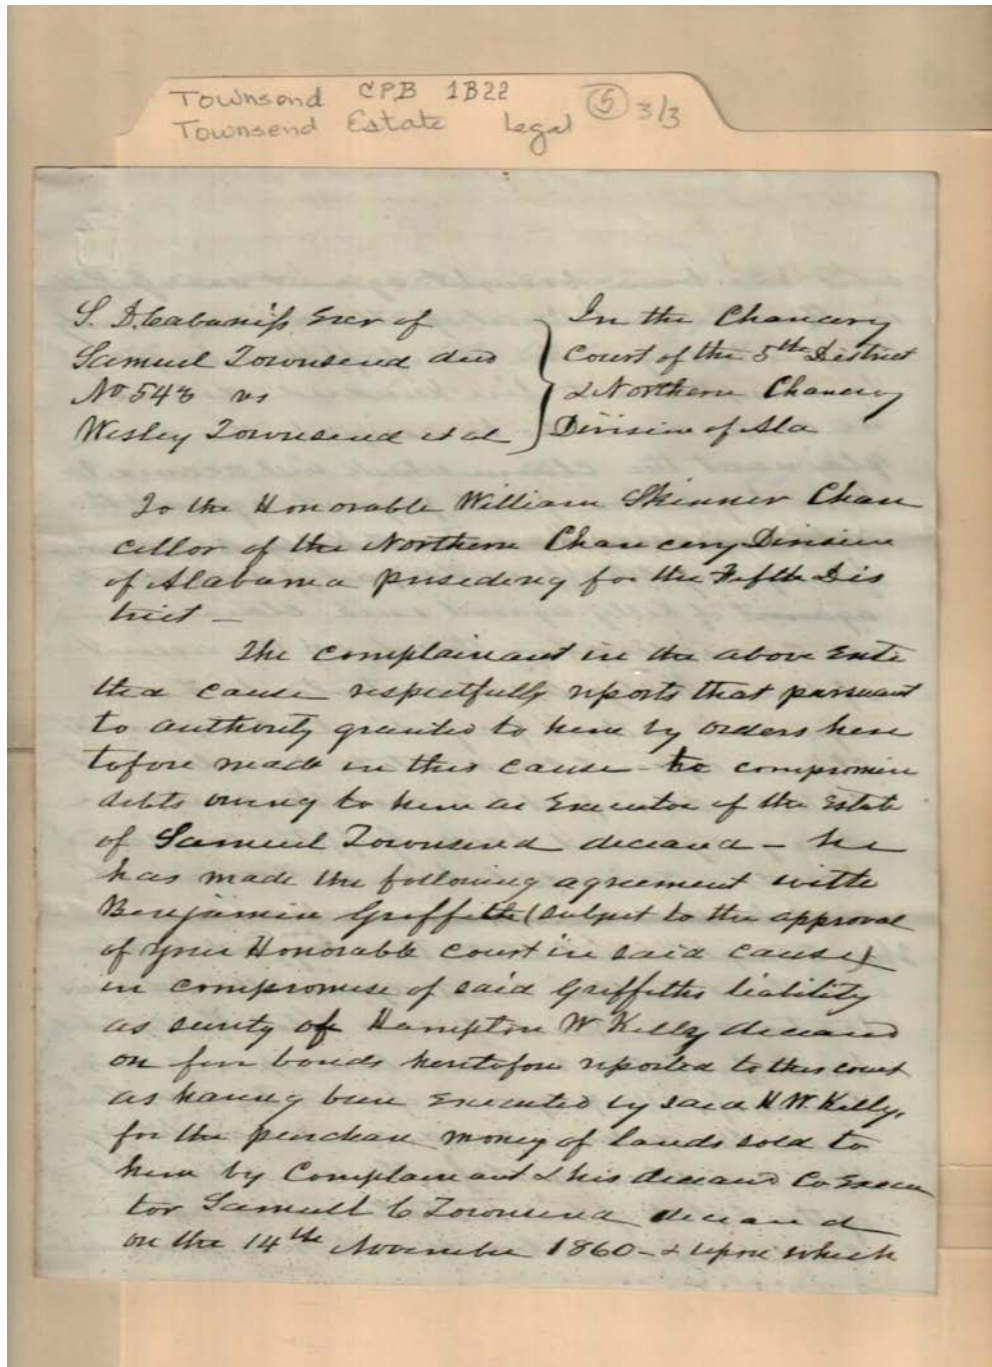 Townsend CPB 1B22 (5) 3/3
Townsend Estate Legal
S. D. Cabaniss Exer of
Samuel Townsend decd
No 548 vs
Wesley Townsend et al
In the Chancery
Court of the 5th District
& Northern Chancery
Division of Ala
To the Honorable William Skinner Chan
cellor of the Northern Chancery Division
of Alabama presiding for the Fifth Dis
trict -
The complainant in the above Enti
tled cause respectfully reports that pursuant
to authority granted to him by orders here
tofore made in this cause - to compromise
debts owing to him as Executor of the Estate
of Samuel Townsend deceased - he
has made the following agreement with
Benjamin Griffith (subject to the approval
of your Honorable court in said cause)
in compromise of said Griffiths liability
as surity of Hampton W Kelly deceased
on bonds heretofore reported to this court
as having been Executed by said H W. Kelly,
for the purchase money of lands sold to
him by Complainant & his deceased Co Execu
tor Samuel C Townsend deceased
on the 14th November 1860 - & upon which